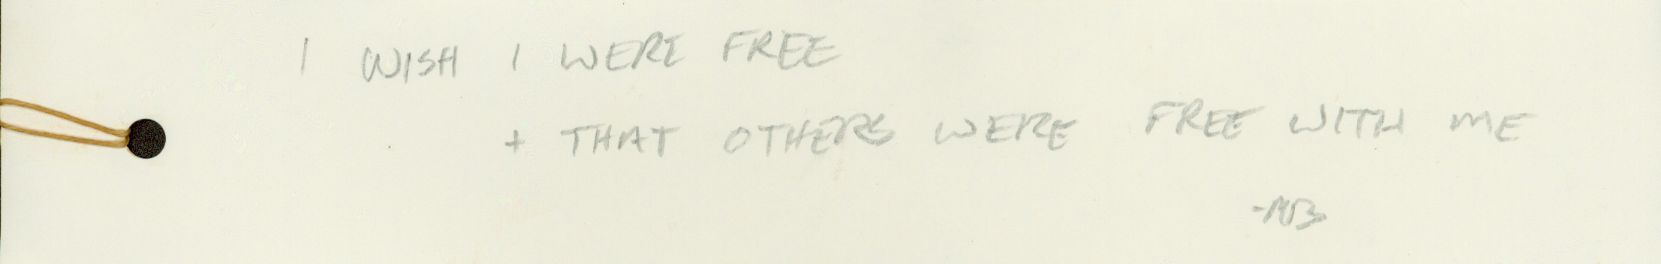 I WISH I WERE FREE
+ THAT OTHERS WERE FREE WITH ME